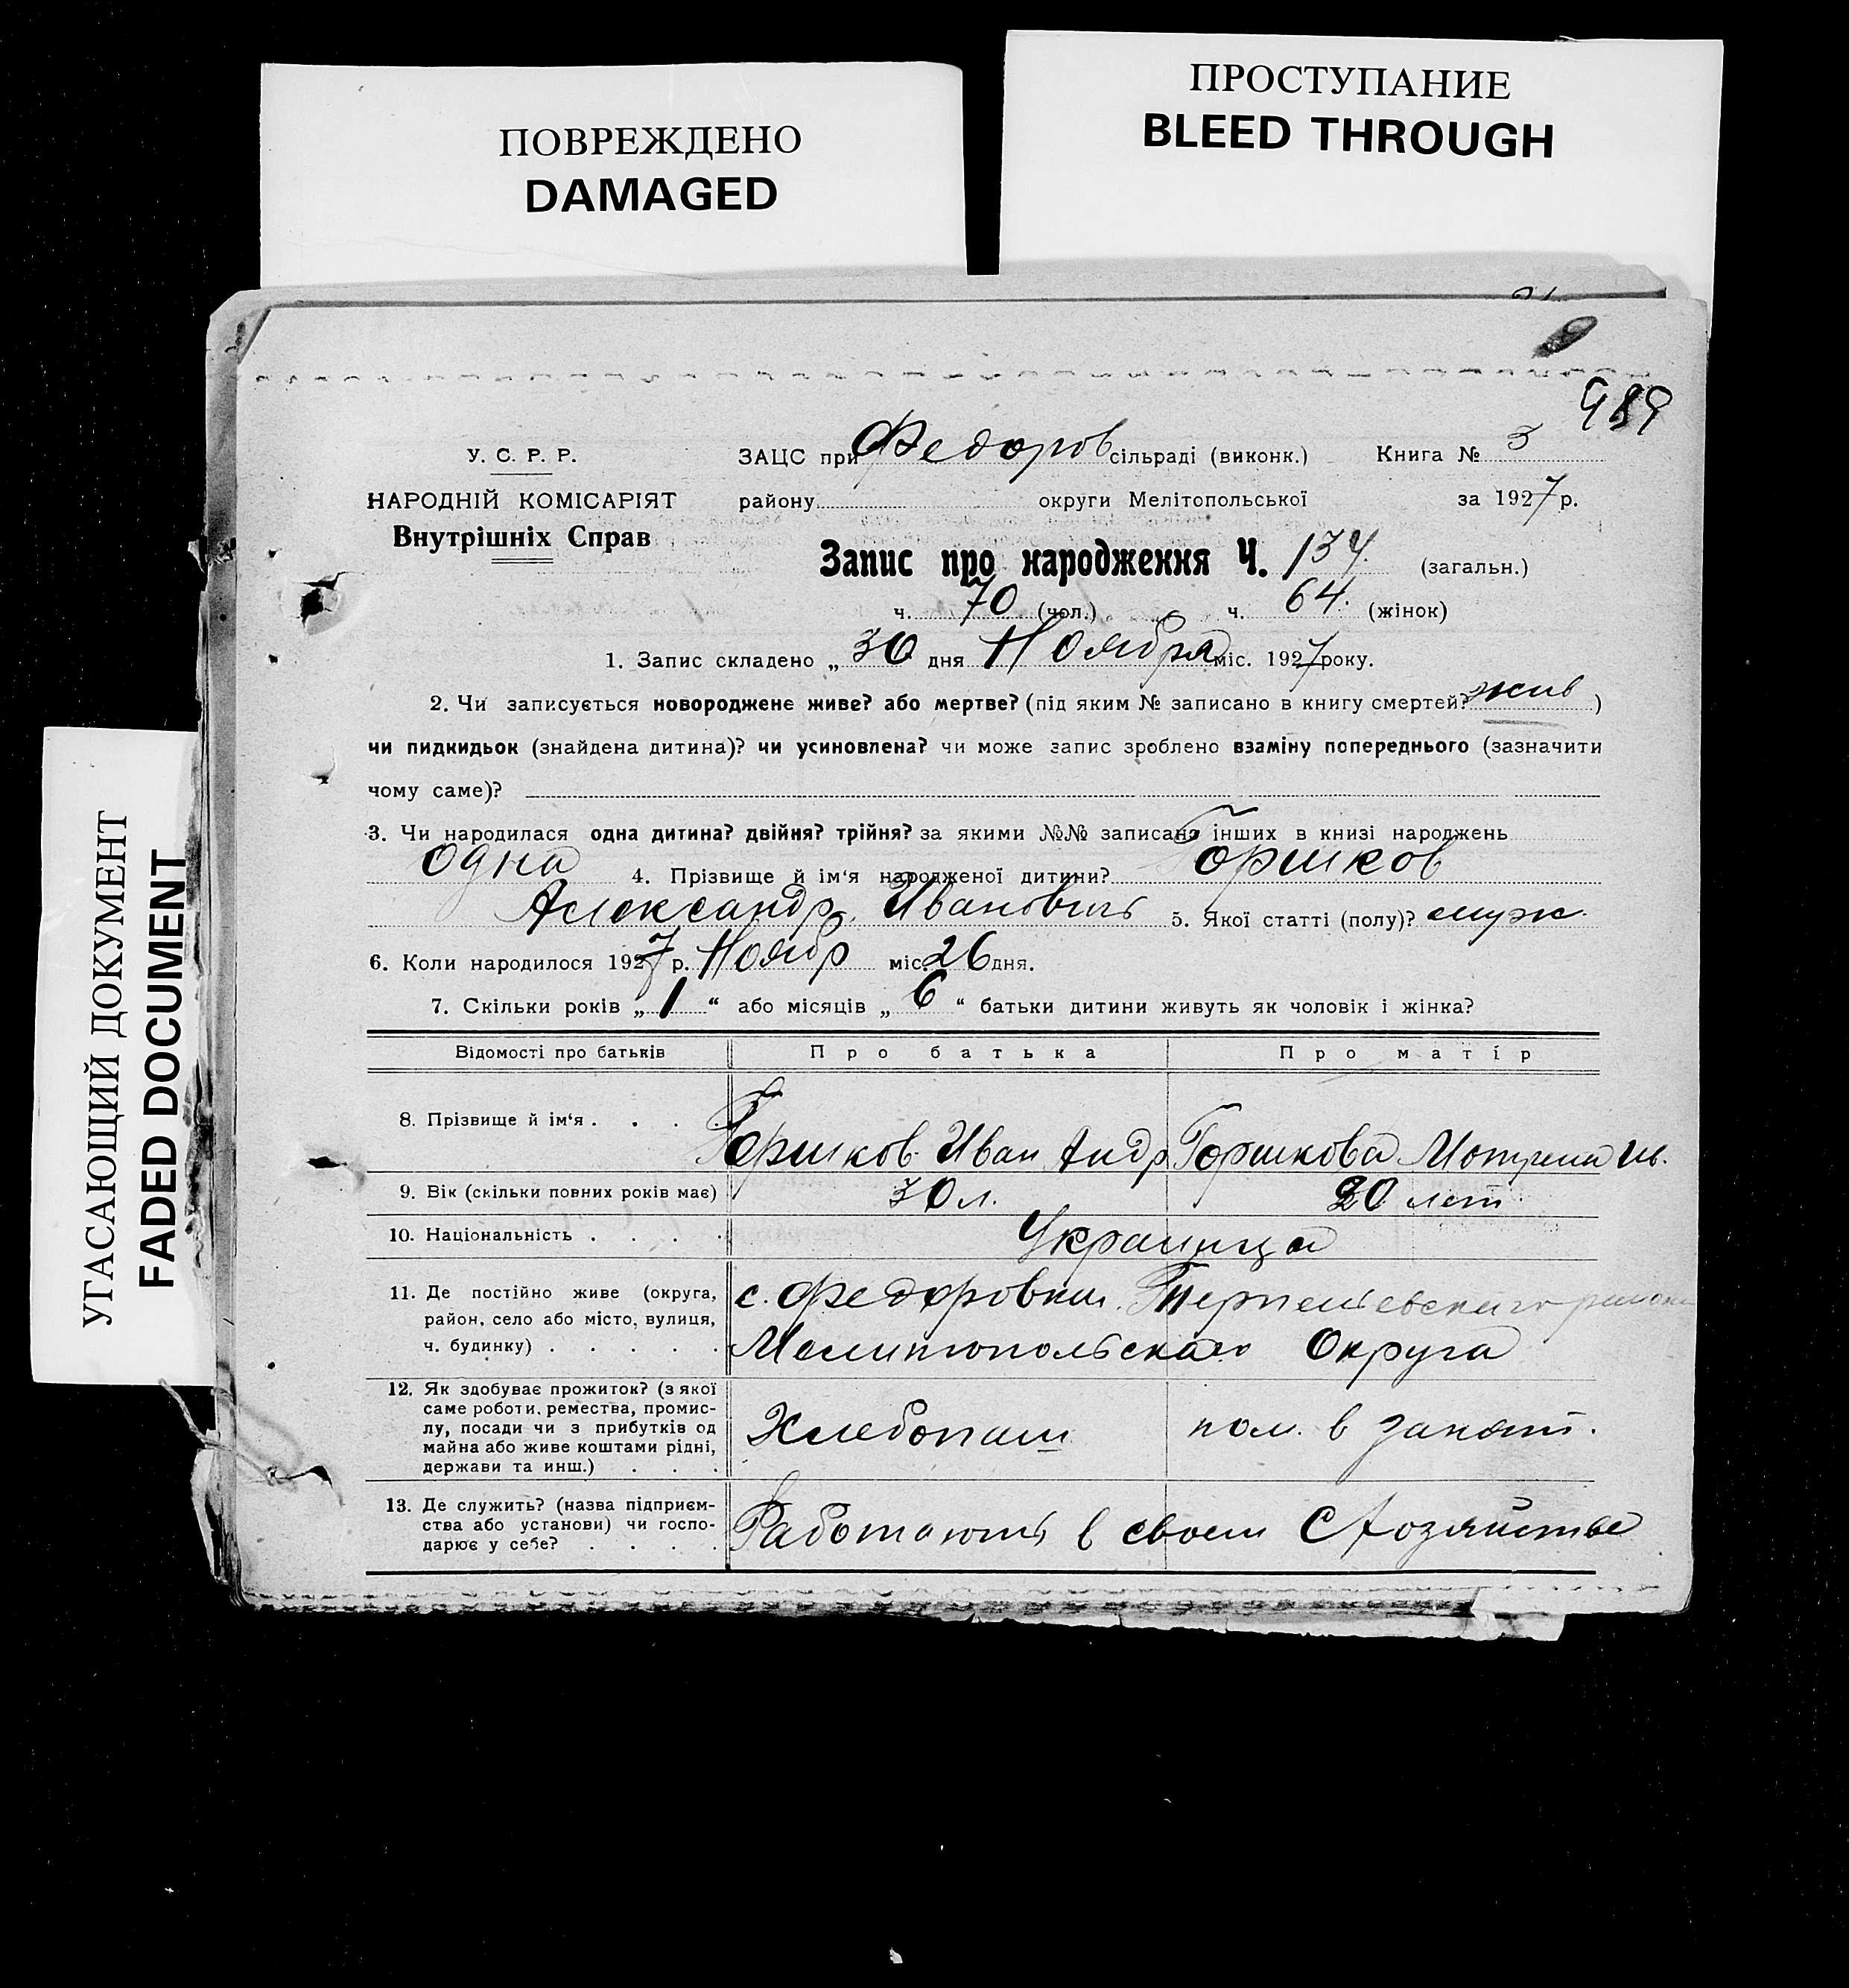 ПОВРЕЖДЕНО
DAMAGED
ПРОСТУПАНИЕ
BLEED THROUGH
УГАСАЮЩИЙ ДОКУМЕНТ
FADED DOCUMENT
489
У. С. Р. Р.
НАРОДНІЙ КОМІСАРІЯТ
Внутрішніх Справ
ЗАЦС при Федоров сільраді (виконк.) Книга № 3
району округи Мелітопольської за 1927 р.
Запис про народження Ч. 134. (загальн.)
ч. 70 (чол.) ч. 64. (жінок)
1. Запис складено „ 30 дня Ноября міс. 1927 року.
2. Чи записується новороджене живе? або мертве? (під яким № записано в книгу смертей? жив )
чи пидкидьок (знайдена дитина)? чи усиновлена? чи може запис зроблено взаміну попереднього (зазначити
чому саме)?
3. Чи народилася одна дитина? двійня? трійня? за якими №№ записано інших в книзі народжень
одна 4. Прізвище й ім‘я народженої дитини? Горшков
Александр Иванович 5. Якої статті (полу)? муж.
6. Коли народилося 1927 р. Ноябр міс. 26 дня.
7. Скільки років „ 1 “ або місяців „ 6 “ батьки дитини живуть як чоловік і жінка?
Відомості про батьків Про батька Про матір
8. Прізвище й ім‘я . . . . Горшков Иван Андр. Горшкова Мотрена Ив.
9. Вік (скільки повних років має) 30 л. 20 лет
10. Національність . . . . Украинца
11. Де постійно живе (округа,
район, село або місто, вулиця,
ч. будинку) . . . . .
с. Федоровки Терпеньевского района
Мелитопольского Округа
12. Як здобуває прожиток? (з якої
саме роботи, ремества, промис-
лу, посади чи з прибутків од
майна або живе коштами рідні,
держави та инш.) . . .
Хлебопаш пом. в занят.
13. Де служить? (назва підприєм-
ства або установи) чи госпо-
дарює у себе? . . . .
Работают в своем С Хозяйстве